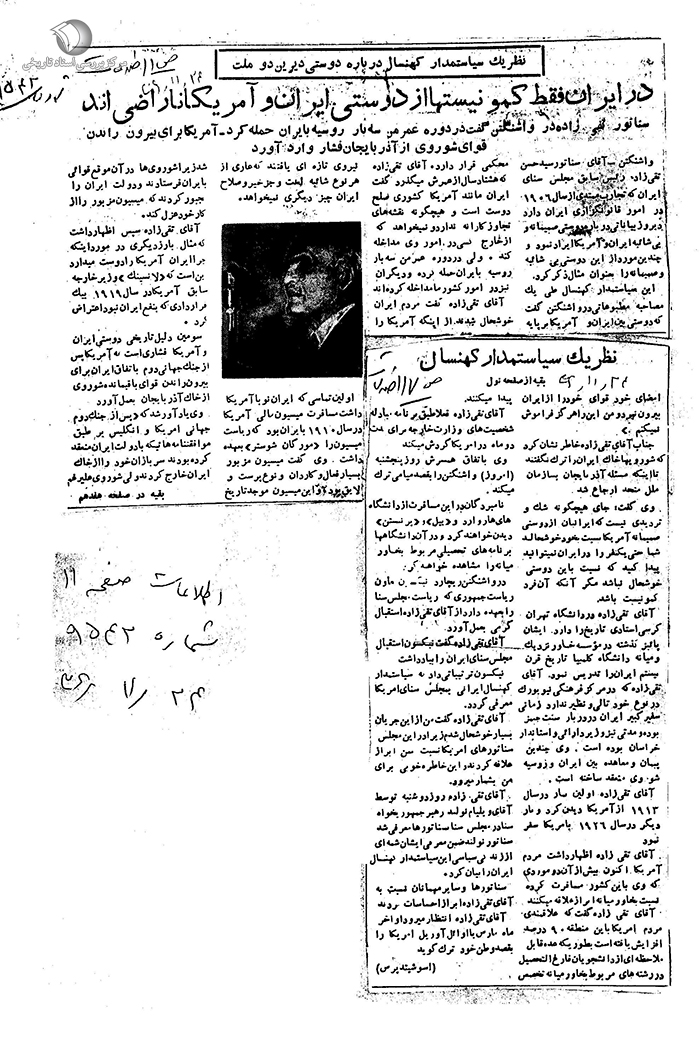 مرکز بررسی اسناد تاریخی
نظر یك سیاستمدار کهنسال درباره دوستی دیرین دو ملت
در ایران فقط کمونیستها از دوستی ایران و آمریکا ناراضی اند
سناتور تقی زاده در واشنگتن گفت در دوره عمر من سه بار روسیه بایران حمله کرد - آمریکا برای بیرون راندن
قوای شوروی از آذربایجان فشار وارد آورد
واشنگتن - آقای سناتور سیدحسن
تقی زاده رئیس سابق مجلس سنای
ایران که تجارب ممتدی از سال ۱۹۰۶
در امور قانونگزاری ایران دارد
دیروز بیاناتی درباره دوستی صمیمانه و
بی شائبه ایران و آمریکا ایراد نمود و
چندین مورد از این دوستی بی شائبه
و صمیمانه را بعنوان مثال ذکر کرد.
این سیاستمدار کهنسال طی یك
مصاحبه مطبوعاتی در واشنگتن گفت
که دوستی بین ایران و آمریکا بر پایه
محکمی قرار دارد. آقای تقی زاده
که هشتاد سال از عمرش میگذرد گفت
ایران مانند آمریکا کشوری صلح
دوست است و هیچگونه نقشه‌های
تجاوزکارانه ندارد و نمیخواهد که
از خارج کسی در امور وی مداخله
کند. ولی در دوره عمر من سه بار
روسیه بایران حمله کرده و دیگران
نیز در امور کشور ما مداخله کرده‌اند
آقای تقی زاده گفت مردم ایران
خوشحال شدند از اینکه آمریکا را
نیروی تازه ای یافتند که عاری از
هر نوع شائبه است و جز خیر و صلاح
ایران چیز دیگری نمیخواهد.
اولین تماسی که ایران نو با آمریکا
داشت مسافرت میسیون مالی آمریکا
در سال ۱۹۱۰ بایران بود که ریاست
میسیون را «مورگان شوستر» بعهده
داشت. وی گفت میسیون مزبور
بسیار فعال و کاردان و نوع پرست و
لایق بود و این میسیون موجد تاریخ
شد زیرا شوروی‌ها در آن موقع قوائی
بایران فرستادند و دولت ایران را
جبور کردند که میسیون مزبور را از
کار خود عزل کند.
آقای تقی زاده سپس اظهار داشت
که مثال بارز دیگری در مورد اینکه
چرا ایران آمریکا را دوست میدارد
این است که «لانسینك» وزیر خارجه
سابق آمریکا در سال ۱۹۱۹ بیك
قراردادی که بنفع ایران نبود اعتراض
کرد.
سومین دلیل تاریخی دوستی ایران
و آمریکا فشاری است که آمریکا پس
از جنك جهانی دوم باتفاق ایران برای
بیرون راندن قوای باقیمانده شوروی
از خاك آذربایجان بعمل آورد
وی یادآور شد که «پس از جنك دوم
جهانی امریکا و انگلیس بر طبق
موافقتنامه‌هائیکه با دولت ایران منعقد
کرده بودند سربازان خود را از خاك
ایران خارج کردند ولی شوروی علیرغم
بقیه در صفحه هفدهم
نظر یك سیاستمدار کهنسال
بقیه از صفحه اول
امضای خود قوای خود را از ایران
بیرون نبرد و من این را هرگز فراموش
نمیکنم.»
جناب آقای تقی زاده خاطرنشان کرد
که شورویها خاك ایران را ترك نگفتند
تا اینکه مسئله آذربایجان بسازمان
ملل متحد ارجاع شد.
وی گفت: جای هیچگونه شك و
تردیدی نیست که ایرانیان از دوستی
صمیمانه آمریکا نسبت بخود خوشحالند
شما حتی یکنفر را در ایران نمیتوانید
پیدا کنید که نسبت باین دوستی
خوشحال نباشد مگر آنکه آن فرد
کمونیست باشد.
آقای تقی زاده در دانشگاه تهران
کرسی استادی تاریخ را دارد. ایشان
پائیز گذشته در مؤسسه خاور نزدیك
و میانه دانشگاه کلمبیا تاریخ قرن
بیستم ایران را تدریس نمود. آقای
تقی زاده که در مرکز فرهنگی نیویورك
در نوع خود تالی و نظیر ندارد زمانی
سفیر کبیر ایران در دربار سنت جیمز
بوده و مدتی نیز وزیر دارائی و استاندار
خراسان بوده است. وی چندین
پیمان و معاهده بین ایران و روسیه
شوروی منعقد ساخته است.
آقای تقی زاده اولین بار در سال
۱۹۱۳ از آمریکا دیدن کرد و بار
دیگر در سال ۱۹۲۶ بامریکا سفر
نمود
آقای تقی زاده اظهار داشت مردم
آمریکا اکنون بیش از آن دو موردی
که وی باین کشور مسافرت کرده
نسبت بخاور میانه ابراز علاقه میکنند
آقای تقی زاده گفت که علاقمندی
مردم امریکا باین منطقه ۹۰ درصد
افزایش یافته است بطوریکه عده قابل
ملاحظه ای از دانشجویان فارغ التحصیل
در رشته های مربوط بخاور میانه تخصص
پیدا میکنند.
آقای تقی زاده فعلا طبق برنامه مبادله
شخصیت‌های وزارت خارجه برای مدت
دو ماه در امریکا گردش میکند
وی باتفاق همسرش روز پنجشنبه
(امروز) واشنگتن را بقصد میامی ترك
میکند.
نامبردگان در این مسافرت از دانشگاه
های هاروارد و «ییل» و «پرنستن»
دیدن خواهند کرد و در آن دانشگاهها
برنامه های تحصیلی مربوط بخاور
میانه را مشاهده خواهند کرد.
در واشنگتن ریچارد نیکسن معاون
ریاست جمهوری که ریاست مجلس سنا
را بعهده دارد از آقای تقی زاده استقبال
گرمی بعمل آورد.
آقای تقی زاده گفت نیکسون استقبال
مجلس سنای ایران را بیاد داشت
نیکسون ترتیباتی داد که سیاستمدار
کهنسال ایرانی بمجلس سنای امریکا
معرفی گردد.
آقای تقی زاده گفت من از این جریان
بسیار خوشحال شدم زیرا در این مجلس
سناتورهای امریکا نسبت بمن ابراز
علاقه کردند این خاطره خوبی برای
من بشمار میرود.
آقای تقی زاده روز دوشنبه توسط
آقای ویلیام نولند رهبر جمهوریخواه
سنا در مجلس سنا بسناتورها معرفی شد
سناتور نولند ضمن معرفی ایشان شمه ای
از زندگی سیاسی این سیاستمدار کهنسال
ایران را بیان کرد.
سناتورها و سایر مهمانان نسبت به
آقای تقی زاده ابراز احساسات کردند
آقای تقی زاده انتظار میرود اواخر
ماه مارس یا اوائل آوریل امریکا را
بقصد وطن خود ترك گوید
(اسوشیتدپرس)
اطلاعات صفحه ۱۱
شماره ۹۵۴۲